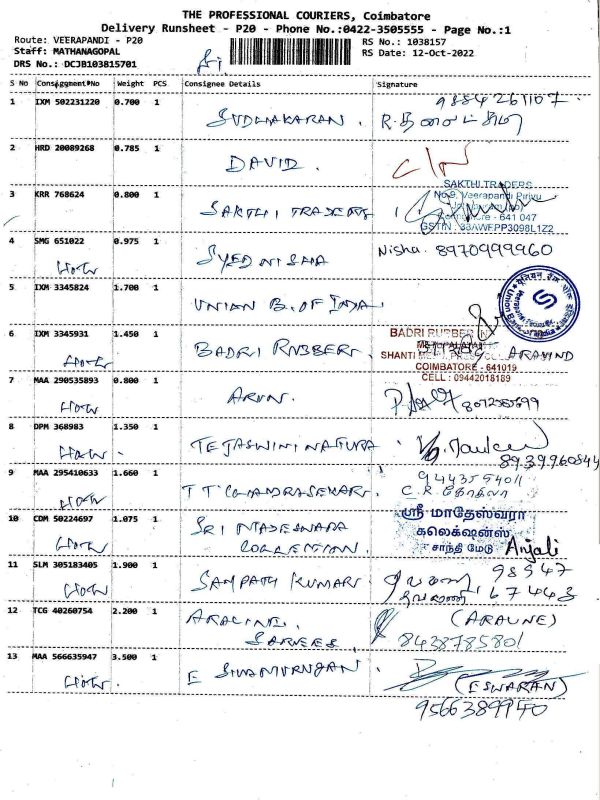 THE PROFESSIONAL COURIERS, Coimbatore
Delivery Runsheet - P20 - Phone No.:0422-3505555 - Page No.:1
Route: VEERAPANDI - P20
RS No.: 1038157
Staff: MATHANAGOPAL
RS Date: 12-Oct-2022
DRS No.: DCJB103815701
S No Consignment No Weight PCS Consignee Details Signature
9884261107
1 IXM 502231220 0.700 1 SUDHAKARAN.
2 HRD 20089268 0.785 1 DAVID.
SAKTHI TRADERS
No.9, Veerapandi Pirivu
3 KRR 768624 0.800 1 SAKTHI TRADERS
Coimbatore - 641 047
GSTIN : 33AWFPP3098L1Z2
4 SMG 651022 0.975 1 SYED NISHA Nisha. 8970999960
5 IXM 3345824 1.700 1 UNION B. OF INDIA
Union Bank
6 IXM 3345931 1.450 1 BADRI RUBBER.
BADRI RUBBER
ARAVIND
COIMBATORE - 641019
CELL : 09442018189
7 MAA 290535893 0.800 1 ARUN.
8 DPM 368983 1.350 1 TEJASWINI NATURA
8939960844
9 MAA 295410633 1.660 1 T T CHANDRASEKAR.
C.R.
10 CDM 50224697 1.075 1 SRI MADESWARA
COLLECTION.
ஸ்ரீ மாதேஸ்வரா
கலெக்ஷன்ஸ்
சாந்தி மேடு Anjali
11 SLM 305183405 1.900 1 SAMPATH KUMAR 98547
67448
12 TCG 40260754 2.200 1 SAREES. (ARAUNE)
8438785801
13 MAA 566635947 3.500 1 E SIVAMURUGAN.
(ESWARAN)
9566389940